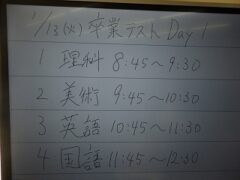 1/13(火)卒業テスト Day 1
1 理科 8:45～9:30
2 美術 9:45～10:30
3 英語 10:45～11:30
4 国語 11:45～12:30